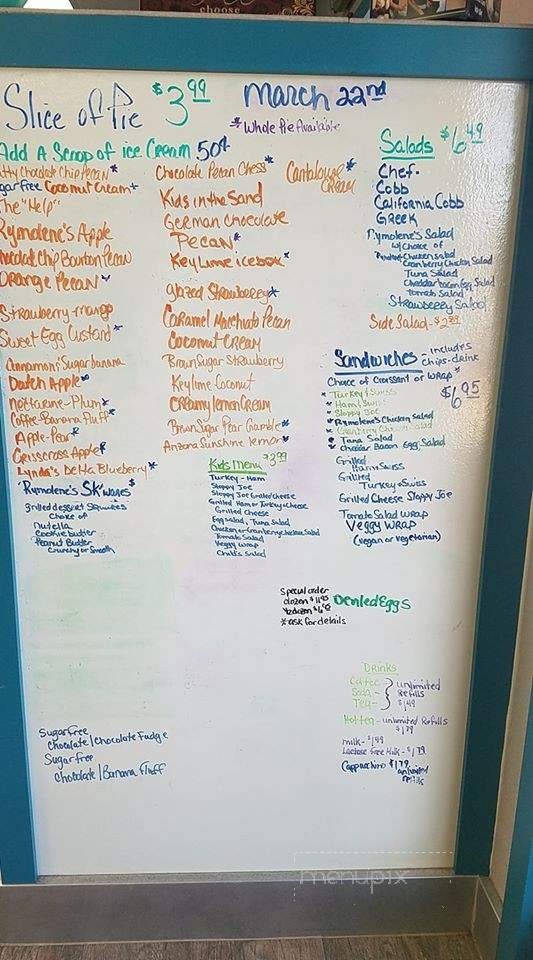 choose
Slice of Pie $3.99
March 22nd
*Whole Pie Available
Add A Scoop of ice Cream 50¢
Chocolate Chip Pecan*
Sugarfree Coconut Cream*
The "Help"
Rymolene's Apple
Chocolate Chip Bourbon Pecan
Orange Pecan
Strawberry-mango
Sweet Egg Custard*
Cinnamon/Sugar banana
Dutch Apple*
Nectarine-Plum*
Coffee-Banana Fluff*
Apple-Pear*
Crisscross Apple*
Lynda's Delta Blueberry*
"Rymolene's SK'wares"
grilled dessert squares
Choice of
nutella
cookie butter
Peanut Butter
crunchy or smooth
Chocolate Pecan Chess*
Kids in the Sand
German Chocolate
Pecan*
Key Lime icebox*
glazed Strawberry*
Caramel Macchiato Pecan
Coconut Cream
Brown Sugar Strawberry
Keylime Coconut
Creamy Lemon Cream
Brown Sugar Pear Crumble*
Arizona Sunshine lemon*
Kids Menu $3.99
Turkey-Ham
Sloppy Joe
Sloppy Joe Grilled Cheese
Grilled Ham or Turkey & Cheese
Grilled Cheese
Egg Salad, Tuna Salad
Chicken or Cranberry Chicken Salad
Tomato Salad
Veggy Wrap
Child's Salad
Cantaloupe*
Cream
Salads $6.49
Chef-
Cobb
California Cobb
Greek
Rymolene's Salad
w/Choice of
Chicken Salad
Cranberry Chicken Salad
Tuna Salad
Cheddar bacon Egg Salad
Tomato Salad
Strawberry Salad
Side Salad-
Sandwiches - includes
chips-drink
Choice of Croissant or Wrap*
$6.95
* Turkey & Swiss
* Ham & Swiss
* Sloppy Joe
* Rymolene's Chicken Salad
* Cranberry Chicken Salad
* Tuna Salad
* Cheddar Bacon Egg Salad
Grilled
Ham & Swiss
Grilled
Turkey & Swiss
Grilled Cheese Sloppy Joe
Tomato Salad Wrap
Veggy Wrap
(vegan or vegetarian)
Special order
dozen $11.95
1/2 dozen
*ask for details
Deviled Eggs
Drinks
Coffee
Soda-
Tea-
unlimited
Refills
$1.49
Hot tea-unlimited Refills
$1.79
milk-$1.49
Lactose Free Milk-$1.79
Cappuccino $1.79
unlimited
refills
Sugarfree
Chocolate/Chocolate Fudge
Sugar free
Chocolate/Banana Fluff
menupix